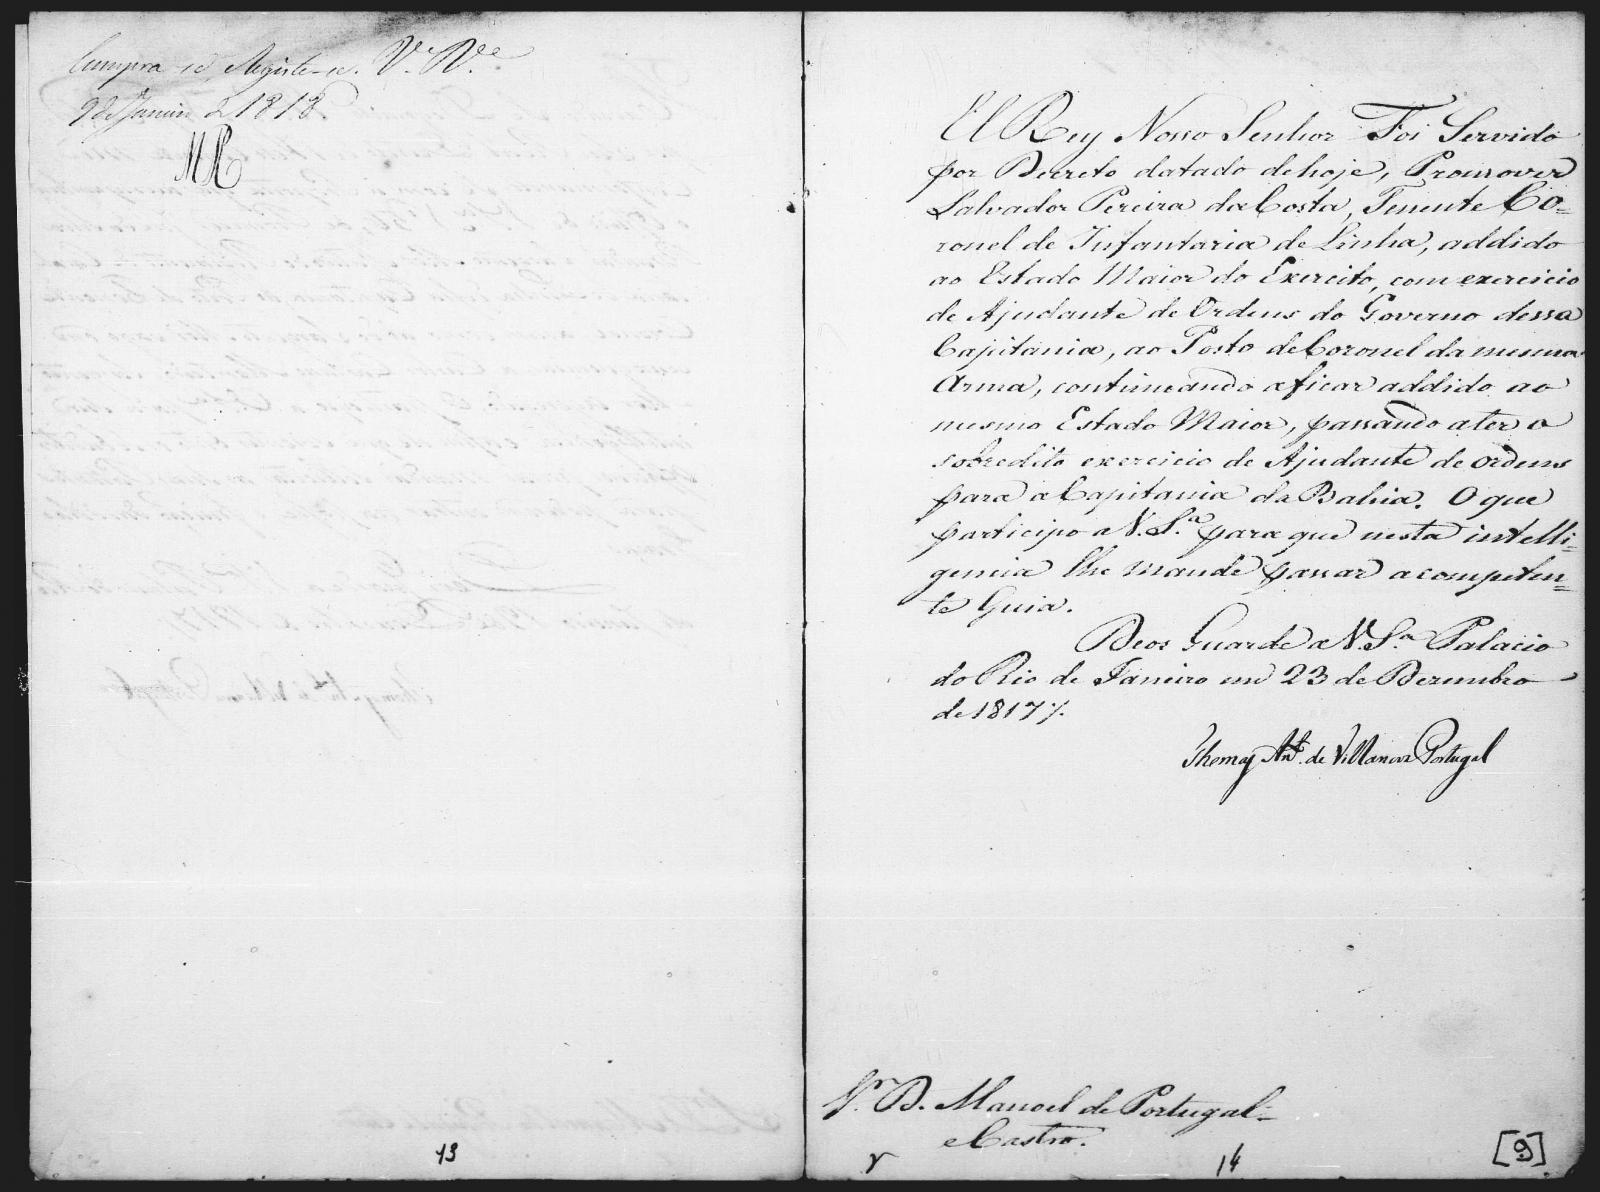 Cumpra-se, Registe-se. Vª Rª
9 de Janeiro d 1818
MR
13
El Rey Nosso Senhor Foi Servido
por Decreto datado de hoje, Promover
Salvador Pereira da Costa, Tenente Co=
ronel de Infantaria de Linha, addido
ao Estado Maior do Exercito, com exercicio
de Ajudante de Ordens do Governo dessa
Capitania, ao Posto de Coronel da mesma
Arma, continuando a ficar addido ao
mesmo Estado Maior, passando a ter o
sobredito exercicio de Ajudante de ordens
para a Capitania da Bahia. O que
participo a V. S.ª para que nesta intelli=
gencia lhe mande passar a competen=
te Guia.
Deos Guarde a V. S.ª Palacio
do Rio de Janeiro em 23 de Dezembro
de 1817.
Thomaz Ant.º de Villanova Portugal
Sr. D. Manoel de Portugal
e Castro.
14
[9]